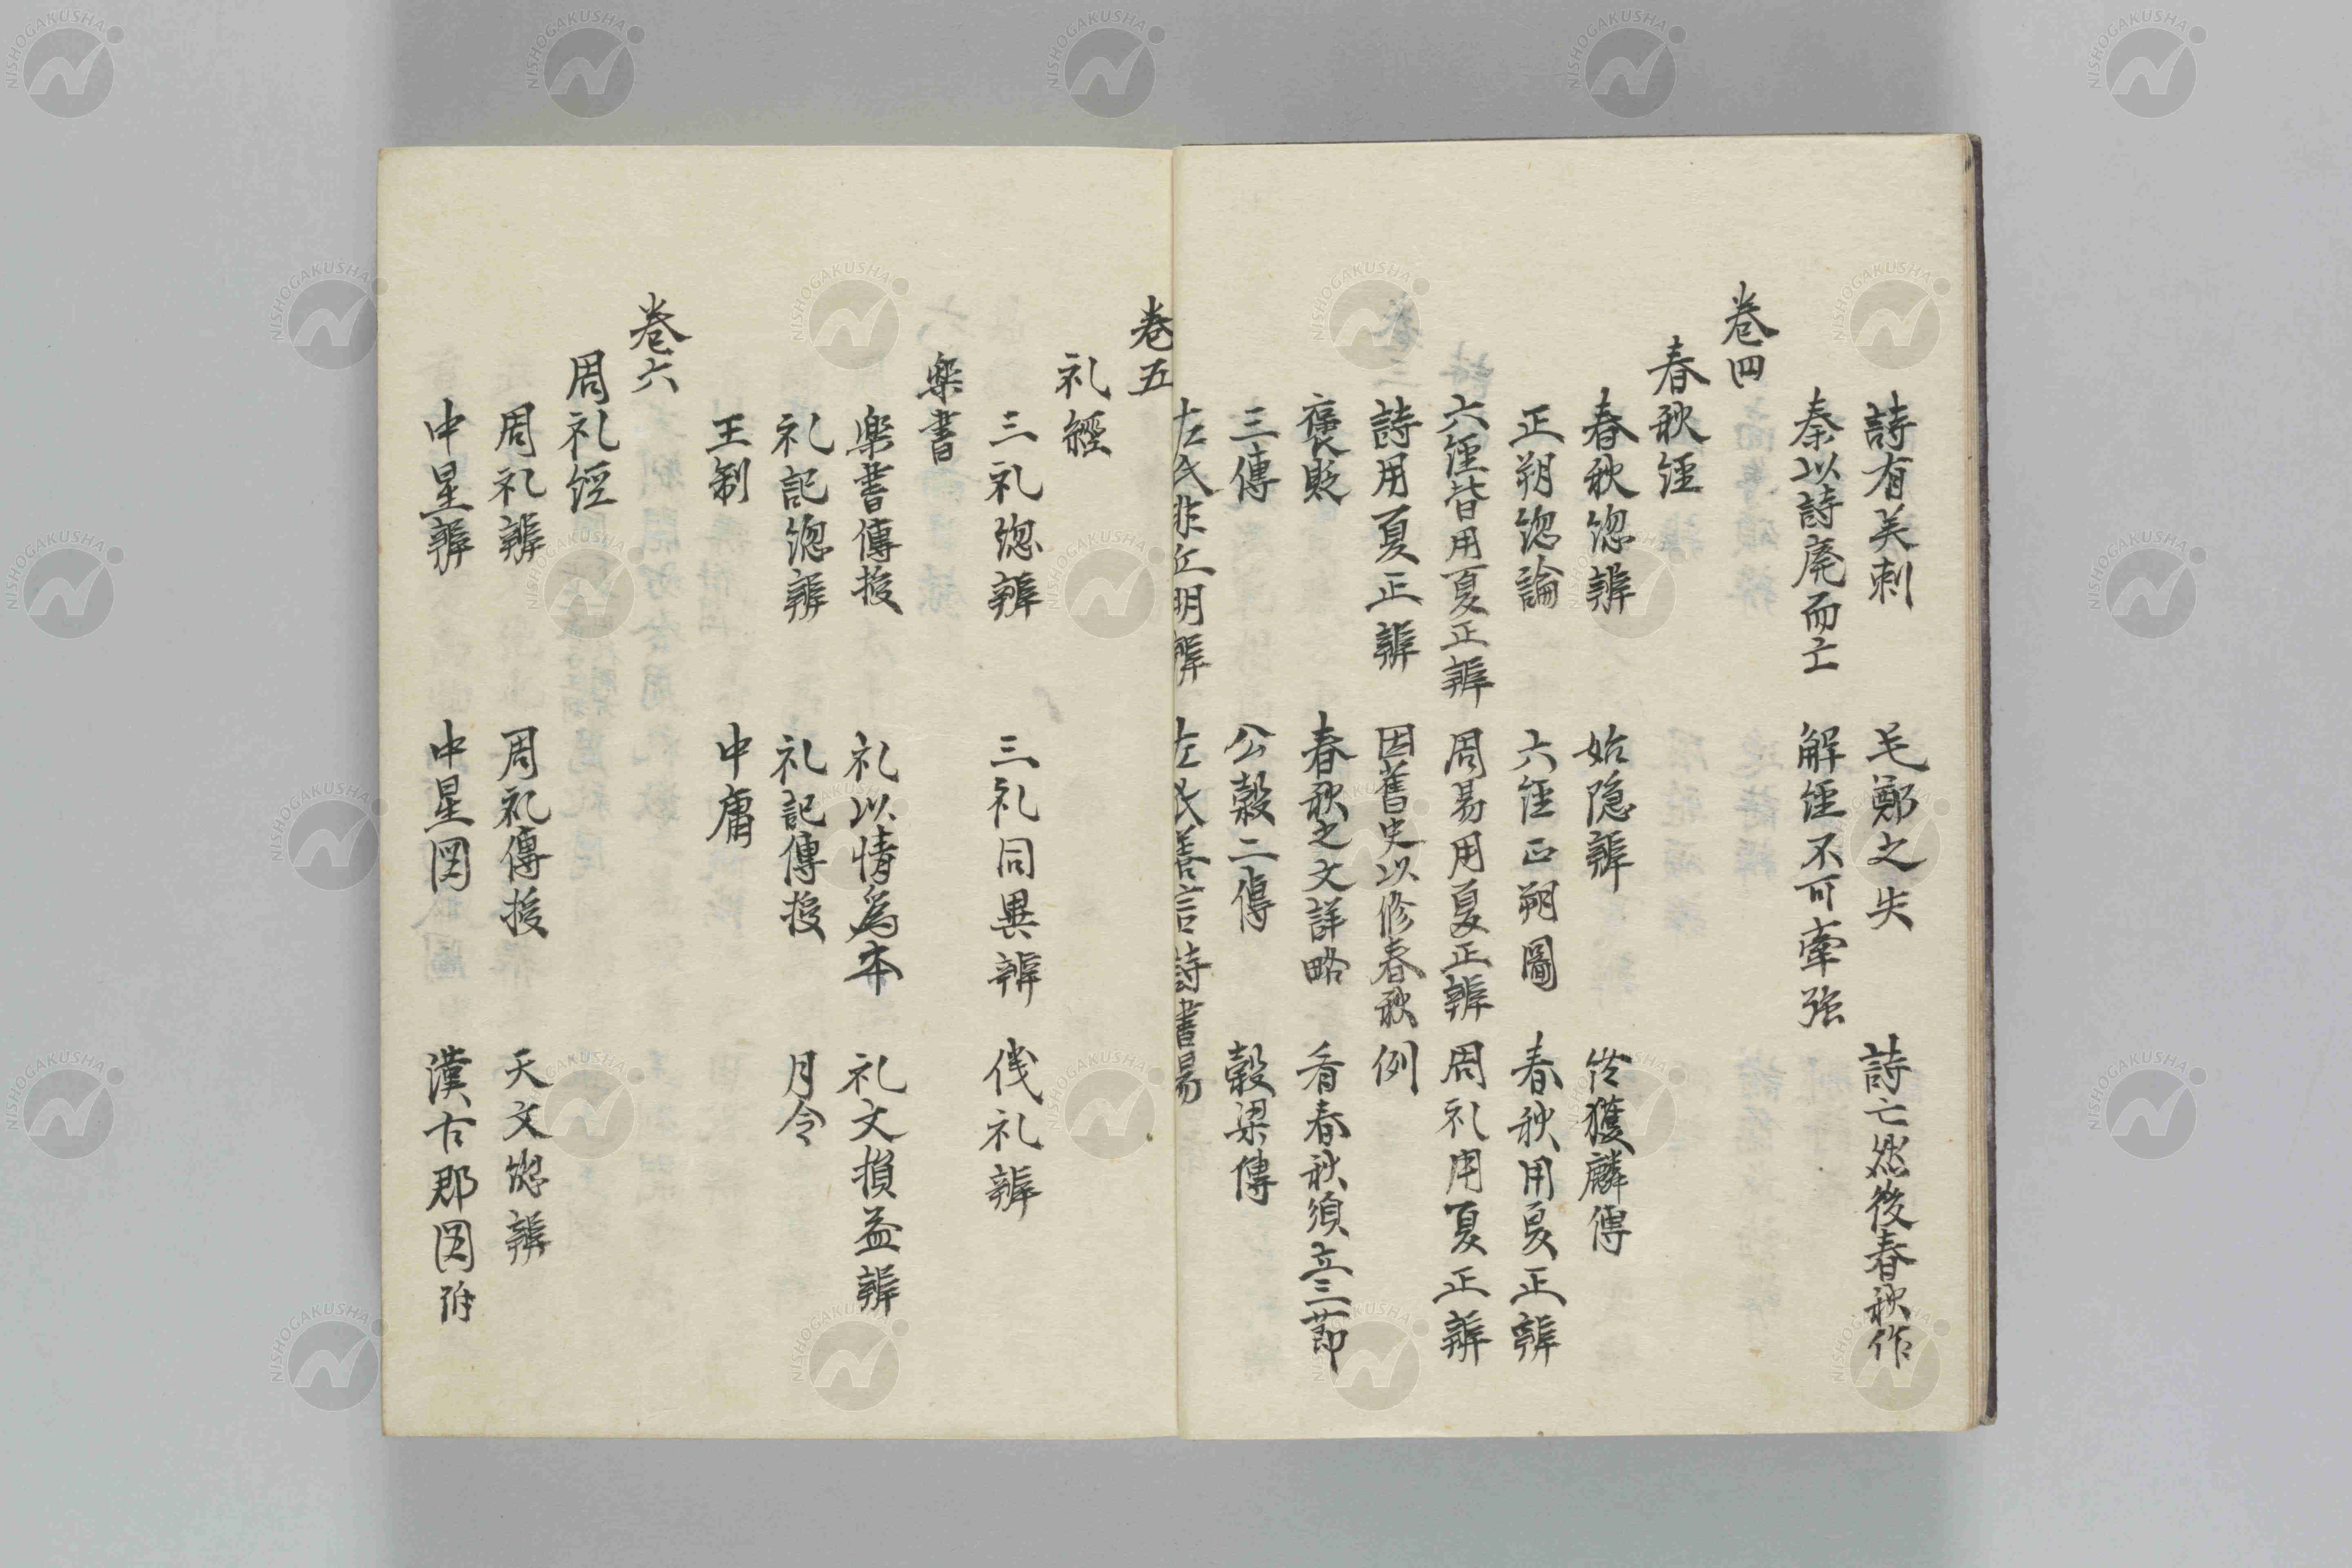 詩有美刺　毛鄭之失　詩亡然後春秋作
秦以詩廃而亡　解経不可牽强
巻四
春秋経
春秋惣辨　始隠辨　終獲麟傳
正朔惣論　六経正朔圖　春秋用夏正辨
六経皆用夏正辨　周易用夏正辨　周礼用夏正辨
詩用夏正辨　因舊史以修春秋　例
褒貶　春秋之文詳略　看春秋須立三節
三傳　公穀二傳　穀梁傳
左氏非丘明辨　左氏善言詩書易
巻五
礼經
三礼惣辨　三礼同異辨　儀礼辨
楽書
楽書傳授　礼以情為本　礼文損益辨
礼記惣辨　礼記傳授　月令
王制　中庸
巻六
周礼経
周礼辨　周礼傳授　天文惣辨
中星辨　中星図　漢古郡図附
NISHOGAKUSHA